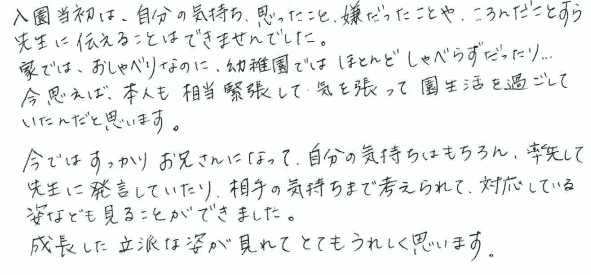 入園当初は、自分の気持ち、思ったこと、嫌だったことや、ころんだことすら
先生に伝えることはできませんでした。
家では、おしゃべりなのに、幼稚園では ほとんど しゃべらずだったり…
今思えば、本人も 相当 緊張して 気を張って 園生活を過ごして
いたんだと思います。
今では すっかり お兄さんになって、自分の気持ちはもちろん、率先して
先生に発言していたり、相手の気持ちまで考えられて、対応している
姿なども見ることができました。
成長した 立派な姿が見れて とてもうれしく思います。